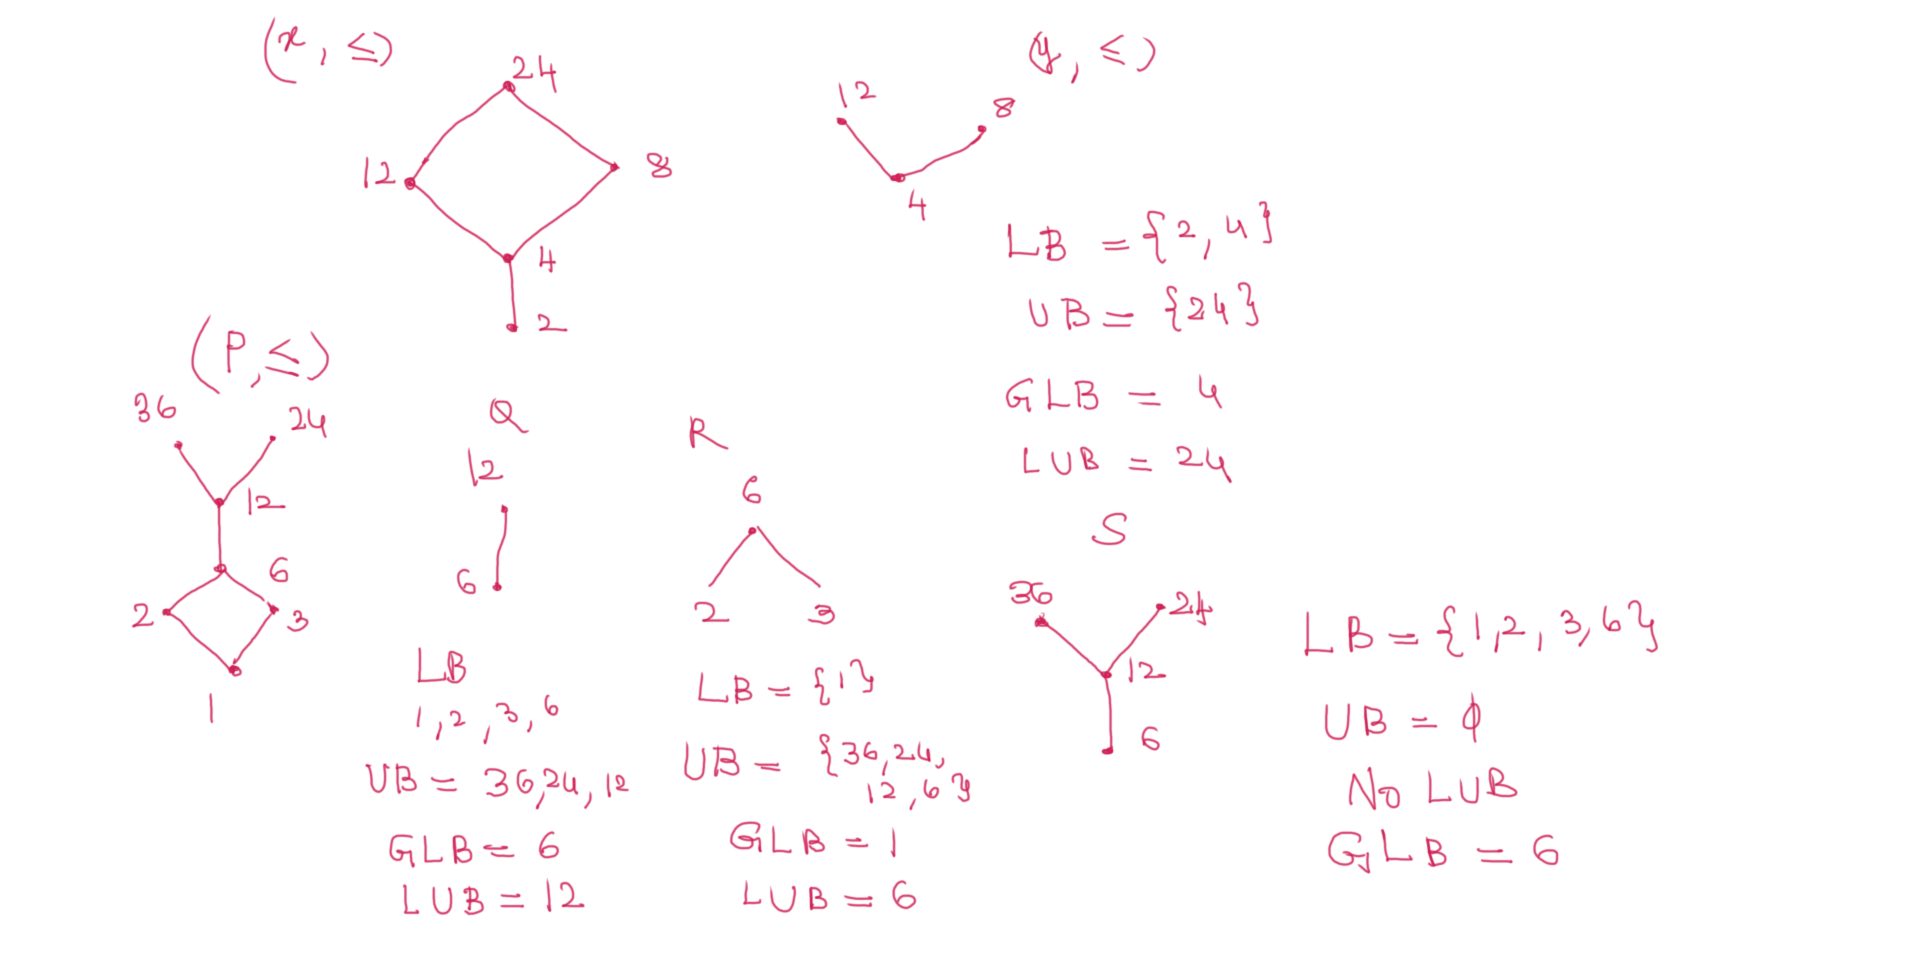 (x, ≤)
24
12
8
4
2
(y, ≤)
12
8
4
LB = {2, 4}
UB = {24}
GLB = 4
LUB = 24
(P, ≤)
36
24
12
6
2
3
1
Q
12
6
LB
1, 2, 3, 6
UB = 36, 24, 12
GLB = 6
LUB = 12
R
6
2
3
LB = {1}
UB = {36, 24,
12, 6}
GLB = 1
LUB = 6
S
36
24
12
6
LB = {1, 2, 3, 6}
UB = ϕ
No LUB
GLB = 6